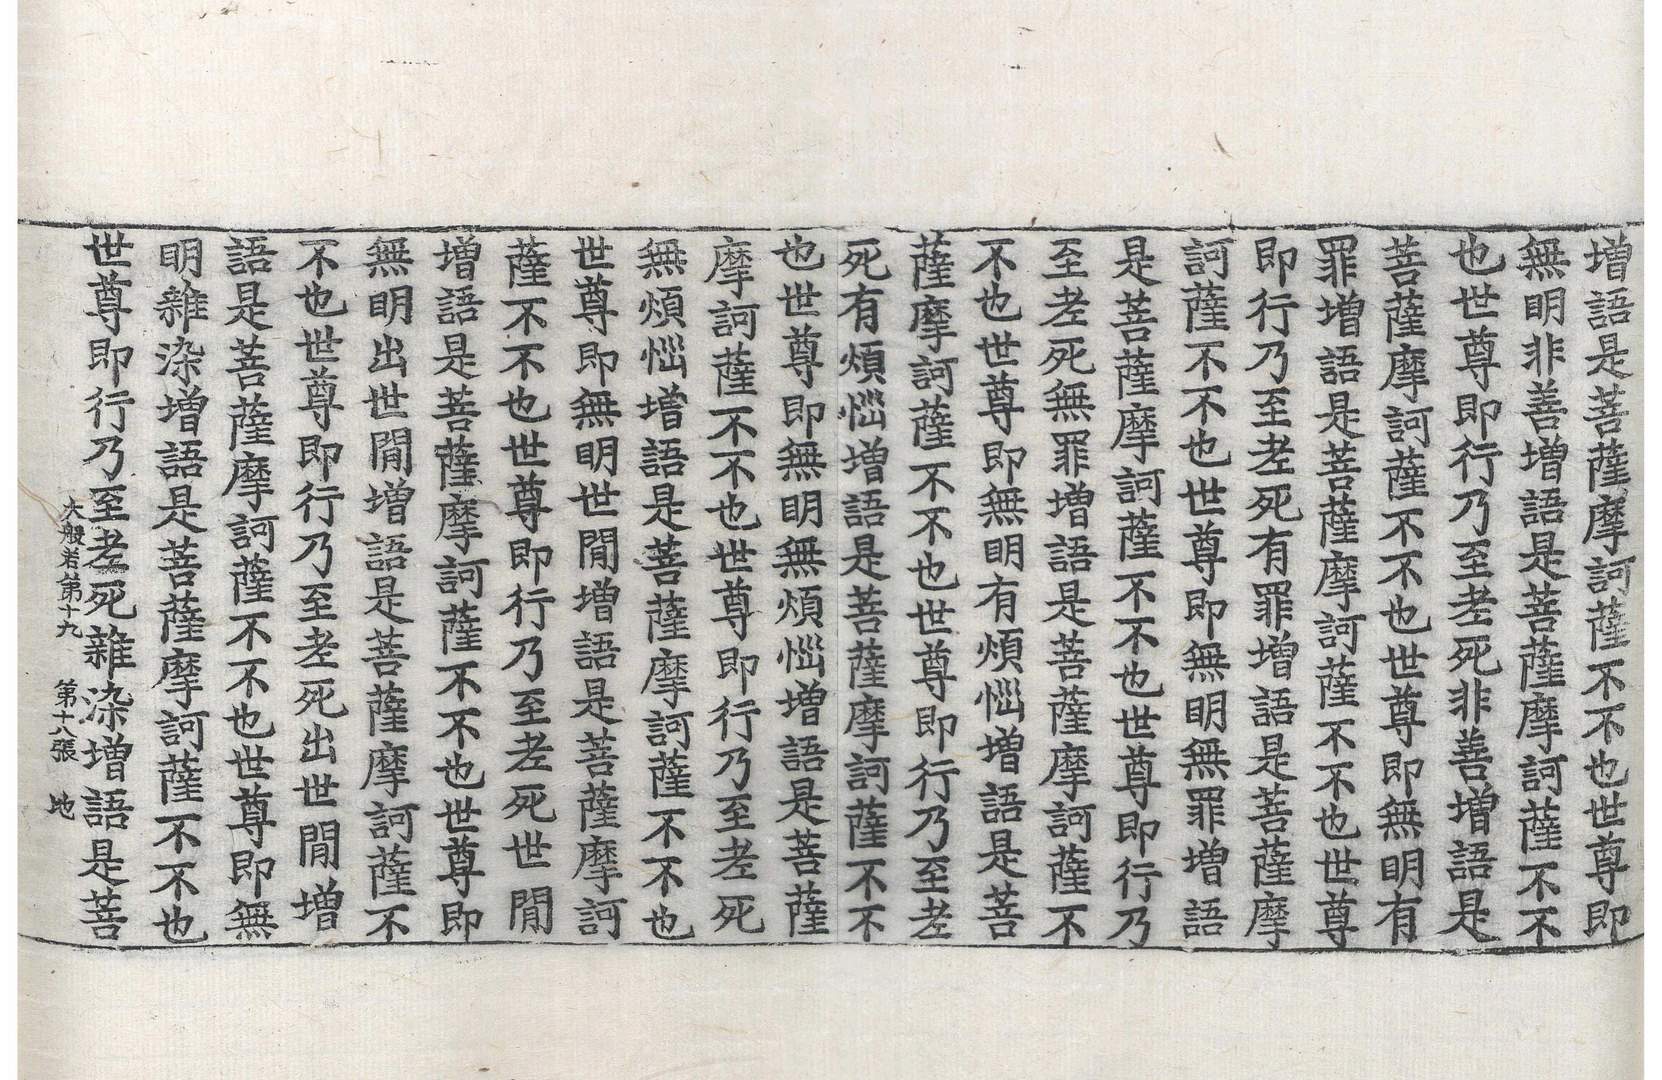 增語是菩薩摩訶薩不不也世尊即
無明非善增語是菩薩摩訶薩不不
也世尊即行乃至老死非善增語是
菩薩摩訶薩不不也世尊即無明有
罪增語是菩薩摩訶薩不不也世尊
即行乃至老死有罪增語是菩薩摩
訶薩不不也世尊即無明無罪增語
是菩薩摩訶薩不不也世尊即行乃
至老死無罪增語是菩薩摩訶薩不
不也世尊即無明有煩惱增語是菩
薩摩訶薩不不也世尊即行乃至老
死有煩惱增語是菩薩摩訶薩不不
也世尊即無明無煩惱增語是菩薩
摩訶薩不不也世尊即行乃至老死
無煩惱增語是菩薩摩訶薩不不也
世尊即無明世閒增語是菩薩摩訶
薩不不也世尊即行乃至老死世閒
增語是菩薩摩訶薩不不也世尊即
無明出世閒增語是菩薩摩訶薩不
不也世尊即行乃至老死出世閒增
語是菩薩摩訶薩不不也世尊即無
明雜染增語是菩薩摩訶薩不不也
世尊即行乃至老死雜染增語是菩
大般若第十九 第十八張 地